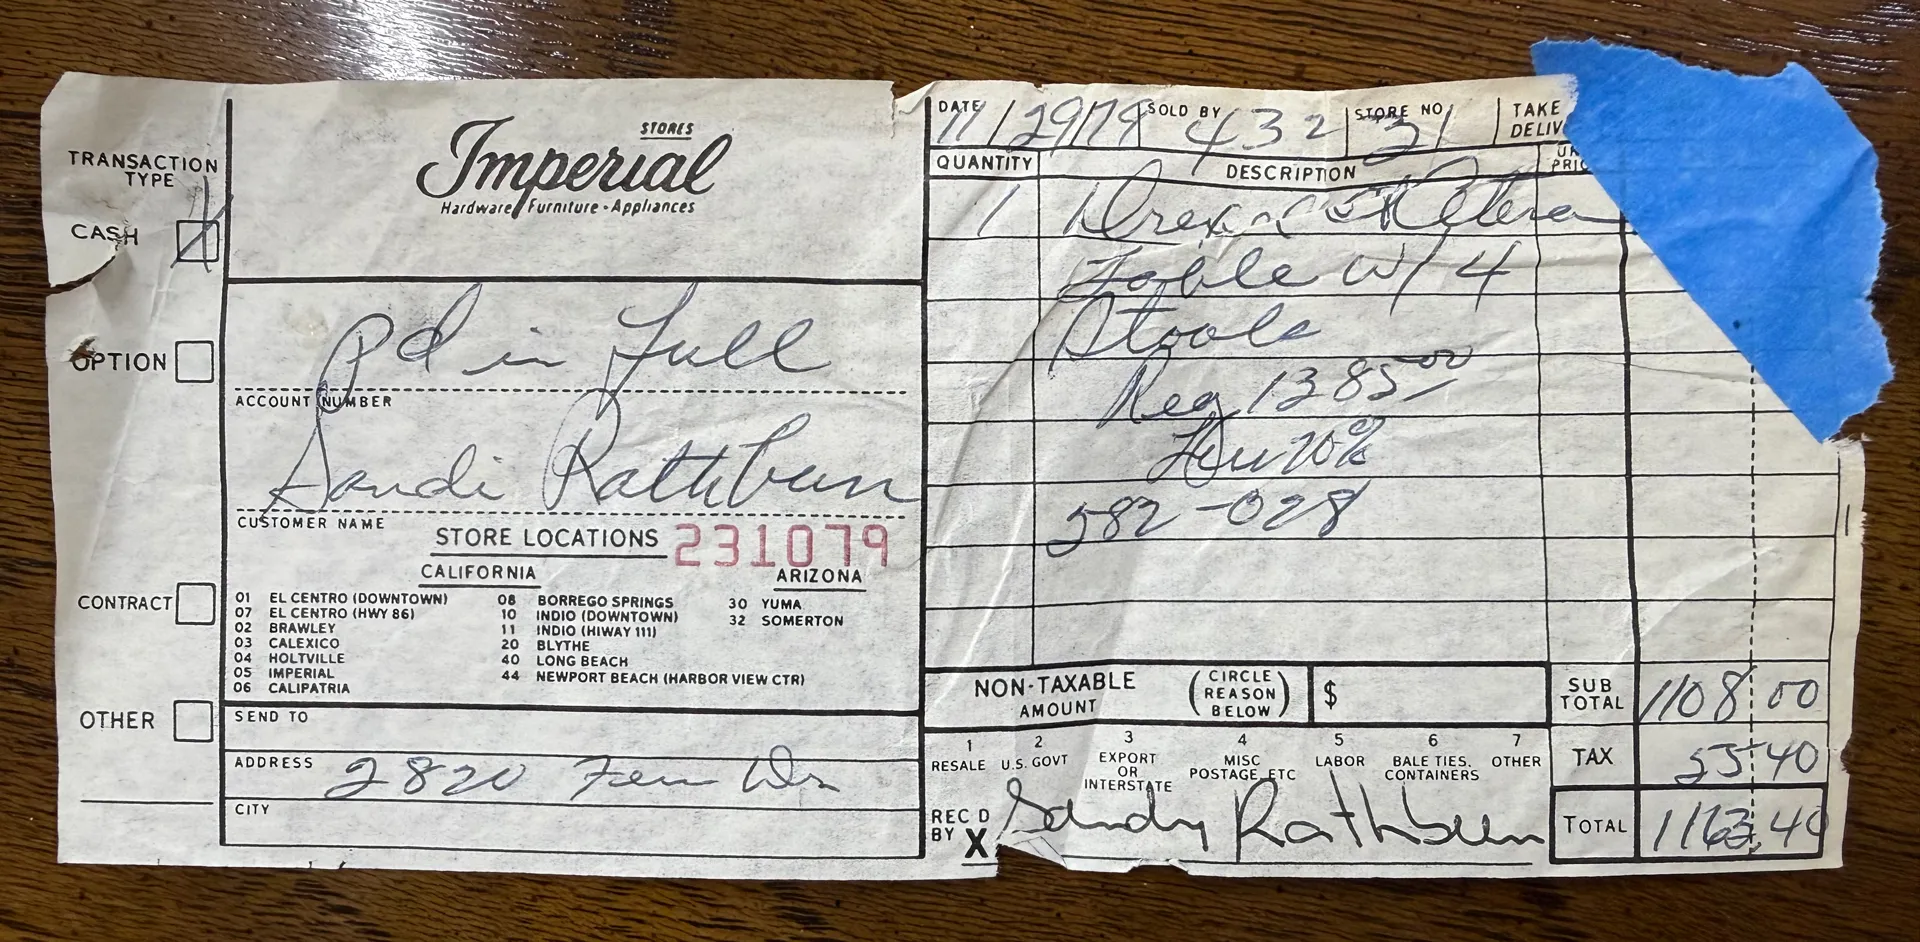 TRANSACTION TYPE
CASH
OPTION
CONTRACT
OTHER
STORES
Imperial
Hardware Furniture - Appliances
Pd in Full
ACCOUNT NUMBER
Sandi Rathbun
CUSTOMER NAME
STORE LOCATIONS 231079
CALIFORNIA
01 EL CENTRO (DOWNTOWN)
07 EL CENTRO (HWY 86)
02 BRAWLEY
03 CALEXICO
04 HOLTVILLE
05 IMPERIAL
06 CALIPATRIA
08 BORREGO SPRINGS
10 INDIO (DOWNTOWN)
11 INDIO (HIWAY 111)
20 BLYTHE
40 LONG BEACH
44 NEWPORT BEACH (HARBOR VIEW CTR)
ARIZONA
30 YUMA
32 SOMERTON
SEND TO
ADDRESS 2820 Dr
CITY
DATE 11/29/79 SOLD BY 432 STORE NO 31 TAKE
DELIV
QUANTITY DESCRIPTION
PRIC
1
Table W/ 4
Stools
Reg 1385.00
20%
582-028
NON-TAXABLE AMOUNT (CIRCLE REASON BELOW) $
1 RESALE
2 U.S. GOVT
3 EXPORT OR INTERSTATE
4 MISC POSTAGE, ETC
5 LABOR
6 BALE TIES. CONTAINERS
7 OTHER
SUB TOTAL 1108 00
TAX 55 40
TOTAL 1163.40
REC D BY X Sandy Rathbun